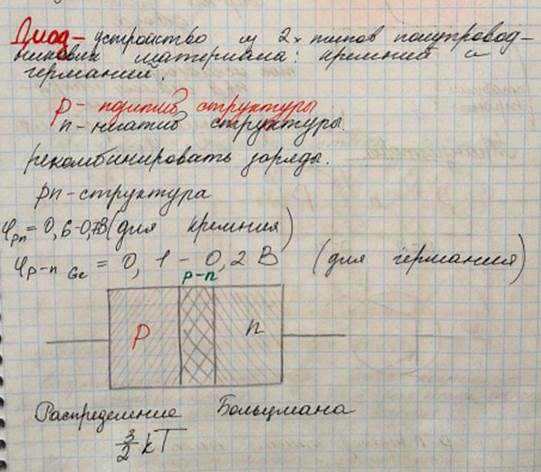 Диод - устройство из 2х типов полупровод-
никовых материала: кремний и
германий.
р - позитив структуры
n - негатив структуры.
рекомбинировать заряды.
pn - структура
φpn = 0,6-0,7В (для кремния)
φp-n Ge = 0,1 - 0,2 В (для германия)
p-n
p n
Распределение Больцмана
3/2 kT